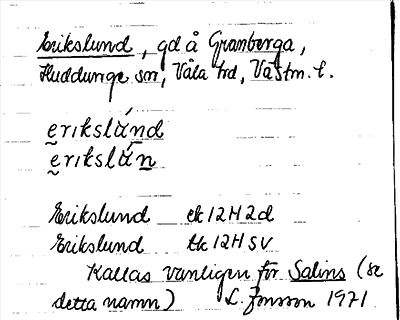 Erikslund, gd å Gramberga,
Huddunge sn, Våla hd, Västm. l.
erikslánd
erikslán
Erikslund ek 12H2d
Erikslund tk 12H SV
Kallas vanligen för Salins (se
detta namn) L. Jonsson 1971